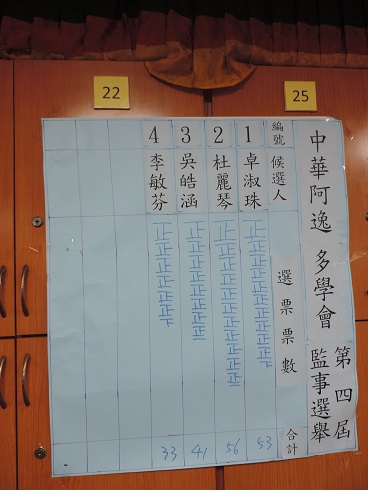 22
25
中華阿逸多學會
第四屆
監事選舉
編號
候選人
選票票數
合計
1
卓淑珠
正正正正正正正正正正
53
2
杜麗琴
正正正正正正正正正正正
56
3
吳皓涵
正正正正正正正正
41
4
李敏芬
正正正正正正
33